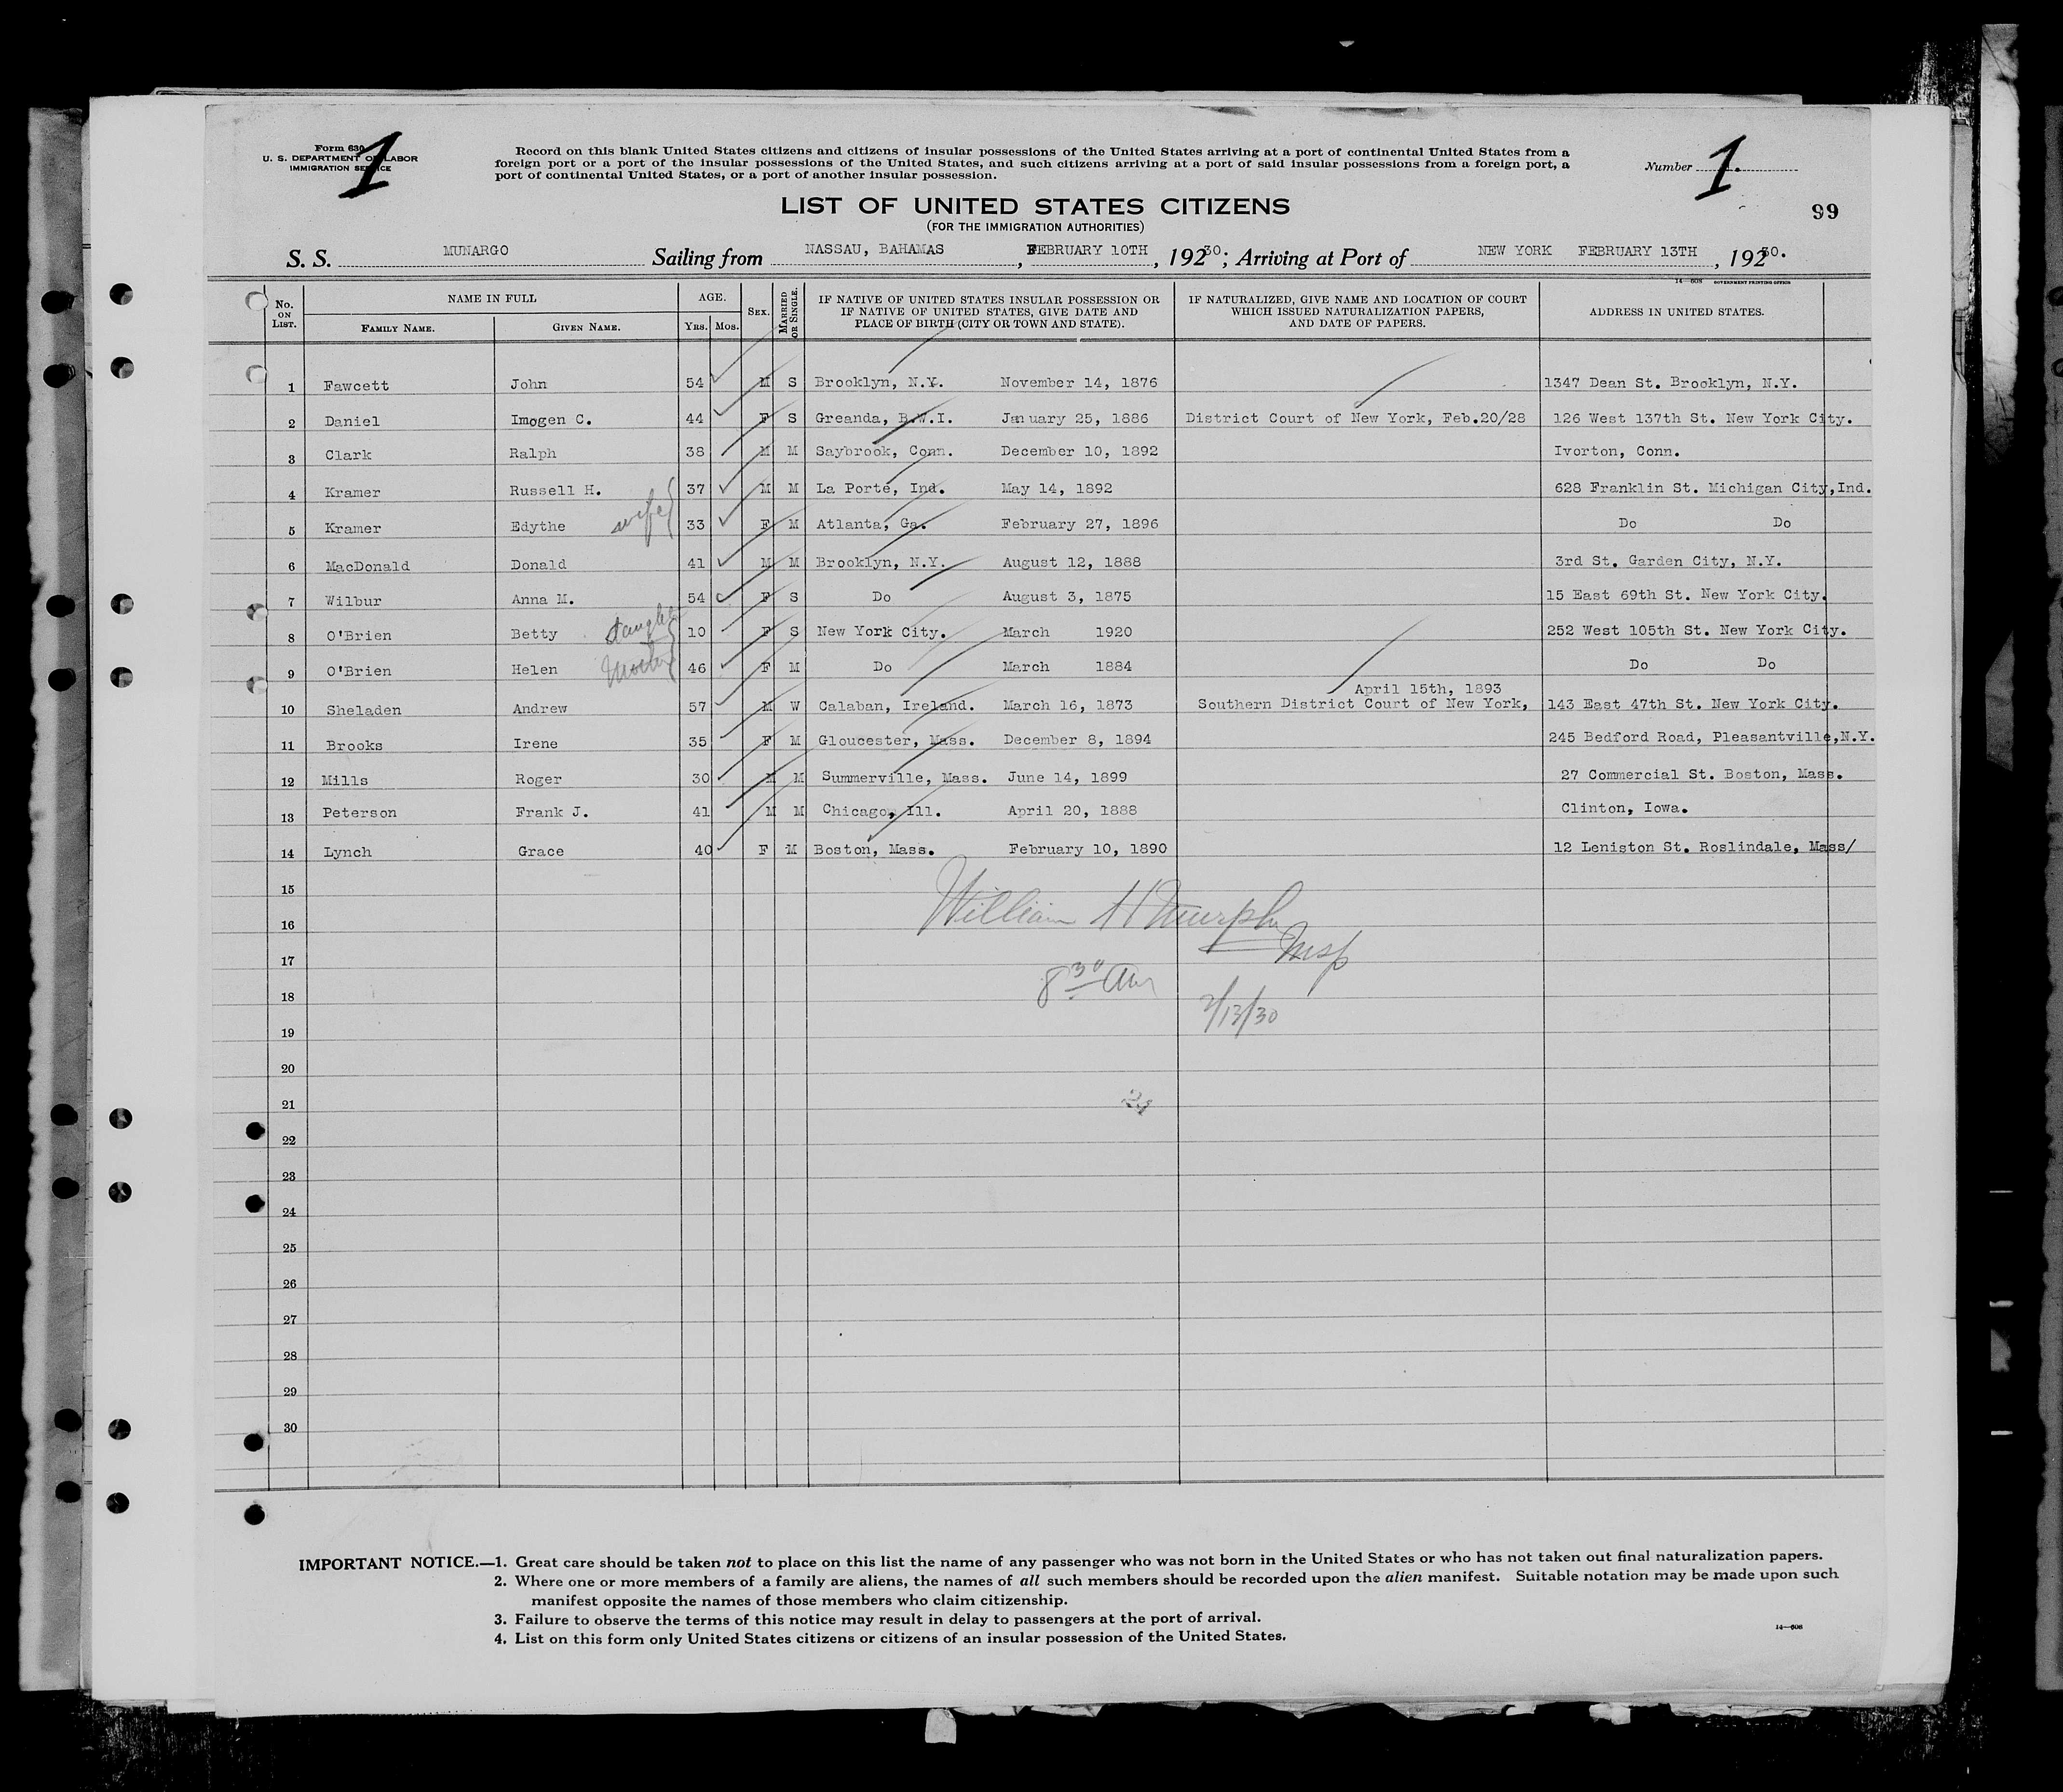 Form 630
U. S. DEPARTMENT OF LABOR
IMMIGRATION SERVICE
1
Record on this blank United States citizens and citizens of insular possessions of the United States arriving at a port of continental United States from a
foreign port or a port of the insular possessions of the United States, and such citizens arriving at a port of said insular possessions from a foreign port, a
port of continental United States, or a port of another insular possession.
Number 1.
99
LIST OF UNITED STATES CITIZENS
(FOR THE IMMIGRATION AUTHORITIES)
S. S. MUNARGO Sailing from NASSAU, BAHAMAS, FEBRUARY 10TH, 19230; Arriving at Port of NEW YORK FEBRUARY 13TH, 19230.
14—608 GOVERNMENT PRINTING OFFICE
No. ON LIST. NAME IN FULL FAMILY NAME. GIVEN NAME. AGE. YRS. MOS. SEX. MARRIED OR SINGLE. IF NATIVE OF UNITED STATES INSULAR POSSESSION OR IF NATIVE OF UNITED STATES, GIVE DATE AND PLACE OF BIRTH (CITY OR TOWN AND STATE). IF NATURALIZED, GIVE NAME AND LOCATION OF COURT WHICH ISSUED NATURALIZATION PAPERS, AND DATE OF PAPERS. ADDRESS IN UNITED STATES.
1 Fawcett John 54 M S Brooklyn, N.Y. November 14, 1876 1347 Dean St. Brooklyn, N.Y.
2 Daniel Imogen C. 44 F S Greanda, B.W.I. January 25, 1886 District Court of New York, Feb.20/28 126 West 137th St. New York City.
3 Clark Ralph 38 M M Saybrook, Conn. December 10, 1892 Ivorton, Conn.
4 Kramer Russell H. 37 M M La Porte, Ind. May 14, 1892 628 Franklin St. Michigan City,Ind.
5 Kramer Edythe wife 33 F M Atlanta, Ga. February 27, 1896 Do Do
6 MacDonald Donald 41 M M Brooklyn, N.Y. August 12, 1888 3rd St. Garden City, N.Y.
7 Wilbur Anna M. 54 F S Do August 3, 1875 15 East 69th St. New York City.
8 O'Brien Betty daughter 10 F S New York City. March 1920 252 West 105th St. New York City.
9 O'Brien Helen Mother 46 F M Do March 1884 Do Do
April 15th, 1893
10 Sheladen Andrew 57 M W Calaban, Ireland. March 16, 1873 Southern District Court of New York, 143 East 47th St. New York City.
11 Brooks Irene 35 F M Gloucester, Mass. December 8, 1894 245 Bedford Road, Pleasantville,N.Y.
12 Mills Roger 30 M M Summerville, Mass. June 14, 1899 27 Commercial St. Boston, Mass.
13 Peterson Frank J. 41 M M Chicago, Ill. April 20, 1888 Clinton, Iowa.
14 Lynch Grace 40 F M Boston, Mass. February 10, 1890 12 Leniston St. Roslindale, Mass/
15
William H Murphy
16
Insp
17
8 30 AM
18
2/13/30
19
20
21
24
22
23
24
25
26
27
28
29
30
IMPORTANT NOTICE.—1. Great care should be taken not to place on this list the name of any passenger who was not born in the United States or who has not taken out final naturalization papers.
2. Where one or more members of a family are aliens, the names of all such members should be recorded upon the alien manifest. Suitable notation may be made upon such
manifest opposite the names of those members who claim citizenship.
3. Failure to observe the terms of this notice may result in delay to passengers at the port of arrival.
4. List on this form only United States citizens or citizens of an insular possession of the United States.
14—608